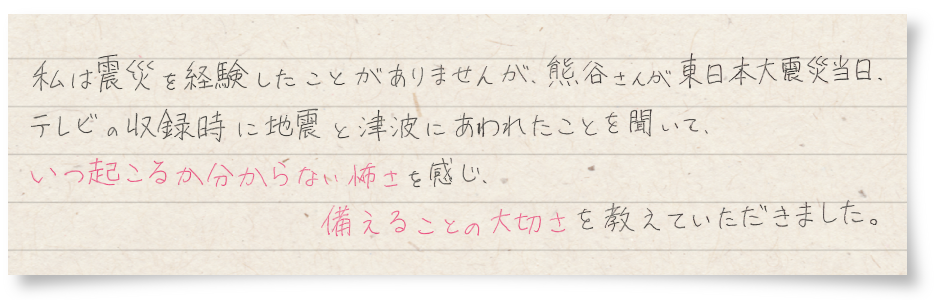 私は震災を経験したことがありませんが、熊谷さんが東日本大震災当日、
テレビの収録時に地震と津波にあわれたことを聞いて、
いつ起こるか分からない怖さを感じ、
備えることの大切さを教えていただきました。